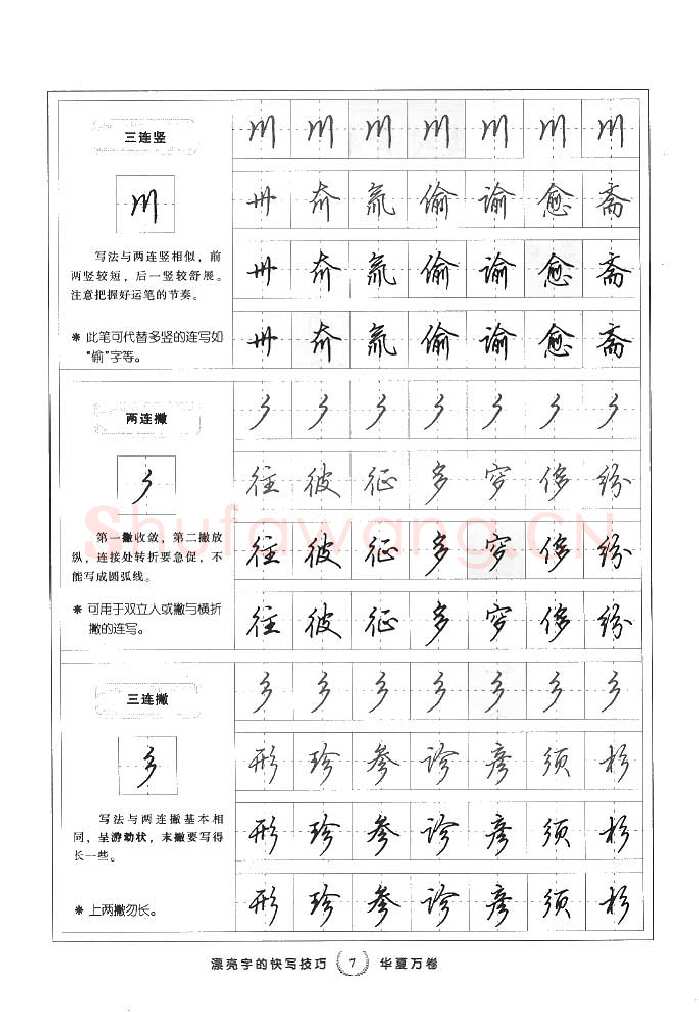 三连竖
川 川 川 川 川 川 川
川
卅 俞 氚 偷 谕 愈 斋
写法与两连竖相似，前
两竖较短，后一竖较舒展。
注意把握好运笔的节奏。
卅 俞 氚 偷 谕 愈 斋
＊ 此笔可代替多竖的连写如
“偷”字等。
卅 俞 氚 偷 谕 愈 斋
两连撇
往 彼 征 多 穿 侈 纷
第一撇收敛，第二撇放
纵，连接处转折要急促，不
能写成圆弧线。
往 彼 征 多 穿 侈 纷
＊ 可用于双立人或撇与横折
撇的连写。
往 彼 征 多 穿 侈 纷
Shufawang.CN
三连撇
形 珍 参 诊 彦 须 杉
写法与两连撇基本相
同，呈游动状，末撇要写得
长一些。
形 珍 参 诊 彦 须 杉
＊ 上两撇勿长。
形 珍 参 诊 彦 须 杉
漂亮字的快写技巧 7 华夏万卷